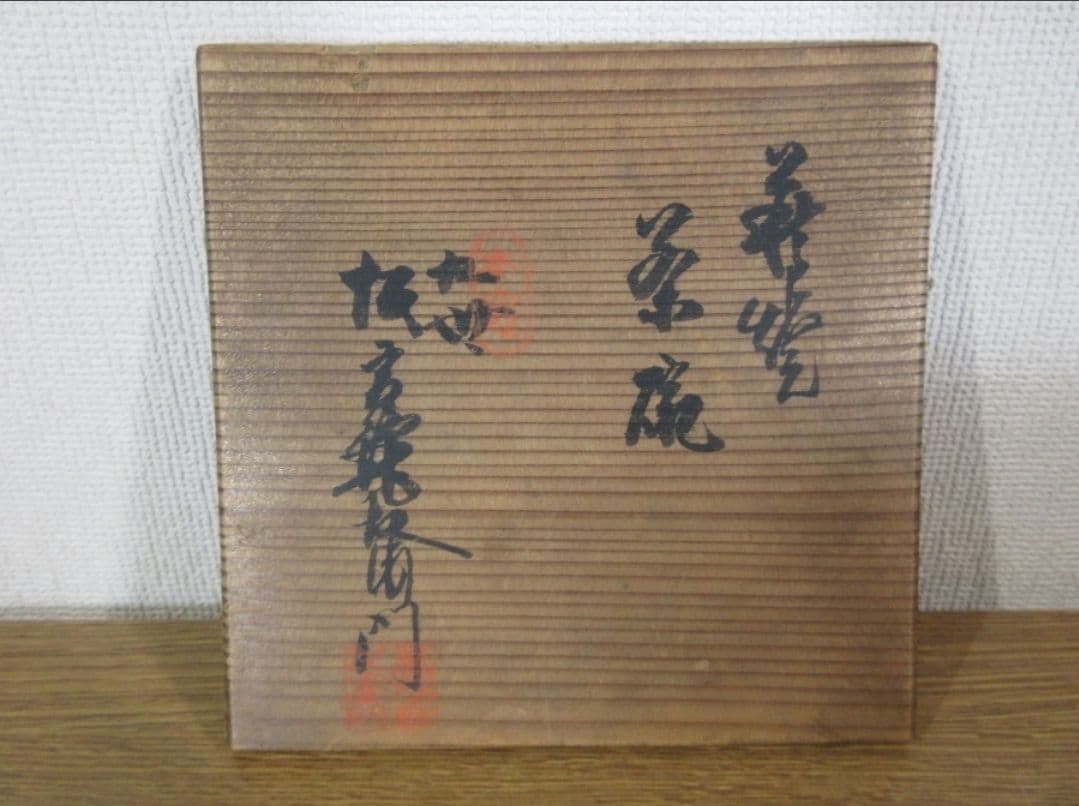 萩焼
茶碗
九世
坂高麗左衛門